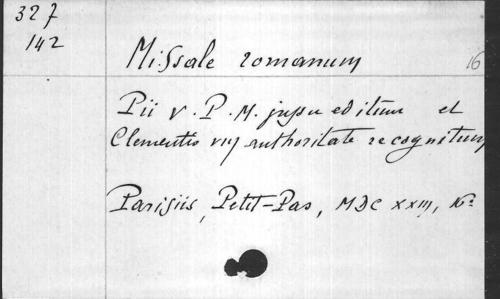 327
142
Missale romanum
16
Pii V. P. M. jussu editum et
Clementis viij authoritate recognitum
Parisiis, Petit-Pas, MDC XXIII, 16º